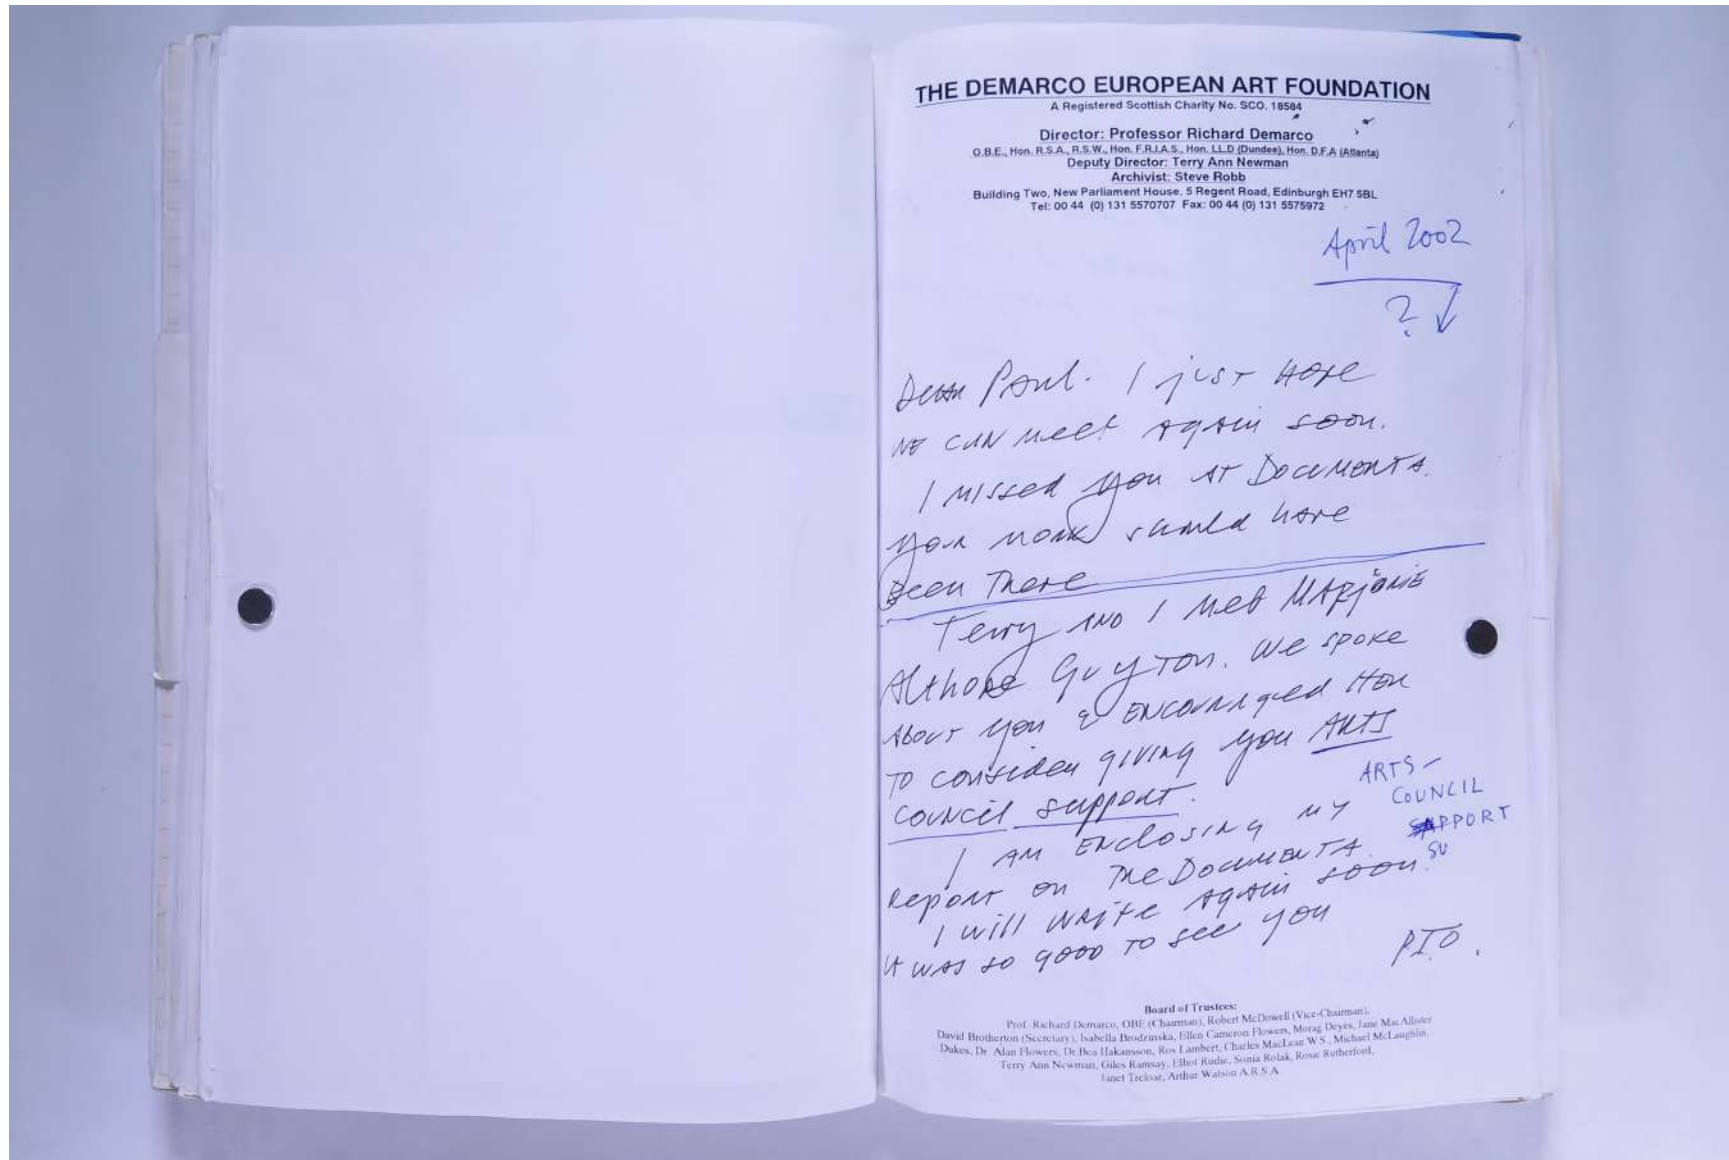 THE DEMARCO EUROPEAN ART FOUNDATION
A Registered Scottish Charity No. SCO. 18584
Director: Professor Richard Demarco
O.B.E., Hon. R.S.A., R.S.W., Hon. F.R.I.A.S., Hon. LL.D (Dundee), Hon. D.F.A (Atlanta)
Deputy Director: Terry Ann Newman
Archivist: Steve Robb
Building Two, New Parliament House, 5 Regent Road, Edinburgh EH7 5BL
Tel: 00 44 (0) 131 5570707 Fax: 00 44 (0) 131 5575972
April 2002
?
Dear Paul. I just hope
we can meet again soon.
I missed you at Documenta.
Your work should have
been there
Terry and I met Marjorie
Althorpe Guyton. We spoke
about you & encouraged her
to consider giving you Arts
Council support.
ARTS-
COUNCIL
SUPPORT
I am enclosing my
report on the Documenta
I will write again soon.
It was so good to see you
P.T.O.
Board of Trustees:
Prof. Richard Demarco, OBE (Chairman), Robert McDowell (Vice-Chairman),
David Brotherton (Secretary), Isabella Brodzinska, Ellen Cameron Flowers, Morag Deyes, Jane MacAllister
Dukes, Dr. Alan Flowers, Dr Bea Hakansson, Ros Lambert, Charles MacLean W.S., Michael McLaughlin,
Terry Ann Newman, Giles Ramsay, Elliot Rudie, Sonia Rolak, Rosie Rutherford,
Janet Treloar, Arthur Watson A.R.S.A